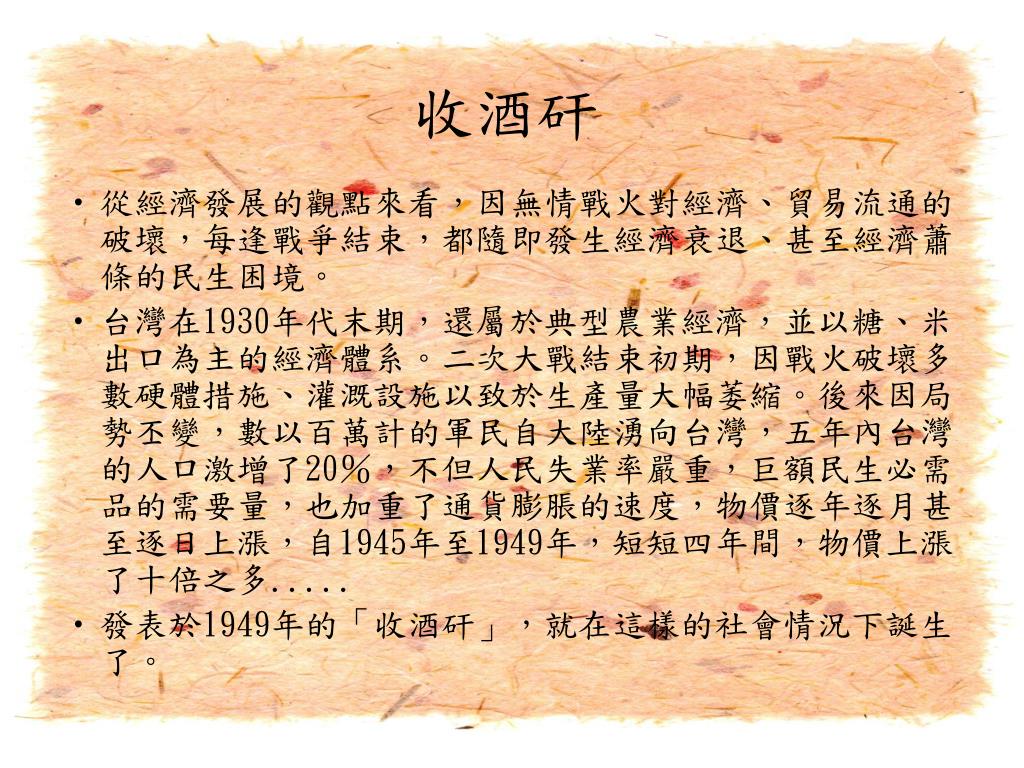 收酒矸
• 從經濟發展的觀點來看，因無情戰火對經濟、貿易流通的
破壞，每逢戰爭結束，都隨即發生經濟衰退、甚至經濟蕭
條的民生困境。
• 台灣在1930年代末期，還屬於典型農業經濟，並以糖、米
出口為主的經濟體系。二次大戰結束初期，因戰火破壞多
數硬體措施、灌溉設施以致於生產量大幅萎縮。後來因局
勢丕變，數以百萬計的軍民自大陸湧向台灣，五年內台灣
的人口激增了20％，不但人民失業率嚴重，巨額民生必需
品的需要量，也加重了通貨膨脹的速度，物價逐年逐月甚
至逐日上漲，自1945年至1949年，短短四年間，物價上漲
了十倍之多.....
• 發表於1949年的「收酒矸」，就在這樣的社會情況下誕生
了。